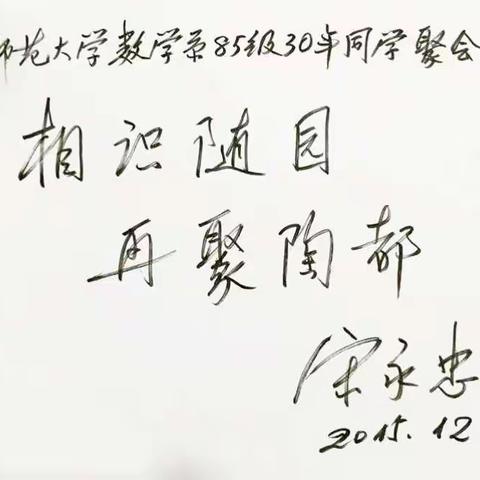 师范大学数学系85级30年同学聚会
相识随园
再聚陶都
宋永忠
2015.12